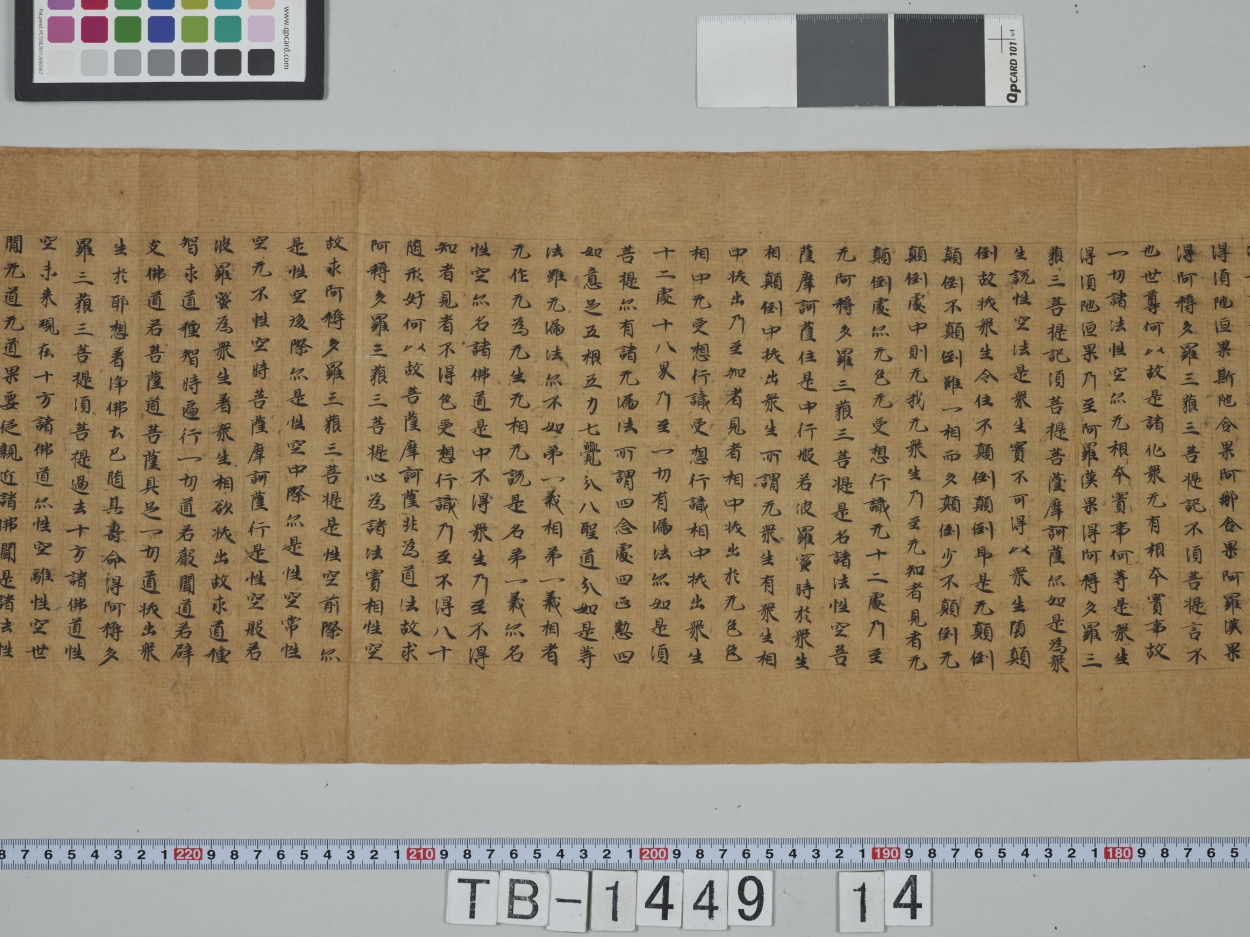 得須陁洹果斯陁含果阿那含果阿羅漢果
得阿耨多羅三藐三菩提記不須菩提言不
也世尊何以故是諸化衆无有根本實事故
一切諸法性空尒无根本實事何等是衆生
得須陁洹果乃至阿羅漢果得阿耨多羅三
藐三菩提記須菩提菩薩摩訶薩尒如是為衆
生說性空法是衆生實不可得以衆生墮顛
倒故拔衆生令住不顛倒顛倒即是无顛倒
顛倒不顛倒雖一相而多顛倒少不顛倒无
顛倒處中則无我无衆生乃至无知者見者无
顛倒處尒无色无受想行識无十二處乃至
无阿耨多羅三藐三菩提是名諸法性空菩
薩摩訶薩住是中行般若波羅蜜時於衆生
相顛倒中拔出衆生所謂无衆生有衆生相
中拔出乃至知者見者相中拔出於无色色
相中无受想行識受想行識相中拔出衆生
十二處十八界乃至一切有漏法尒如是須
菩提尒有諸无漏法所謂四念處四正懃四
如意足五根五力七覺分八聖道分如是等
法雖无漏法尒不如弟一義相弟一義相者
无作无為无生无相无說是名弟一義尒名
性空尒名諸佛道是中不得衆生乃至不得
知者見者不得色受想行識乃至不得八十
随形好何以故菩薩摩訶薩非為道法故求
阿耨多羅三藐三菩提心為諸法實相性空
故求阿耨多羅三藐三菩提是性空前際尒
是性空後際尒是性空中際尒是性空常性
空无不性空時菩薩摩訶薩行是性空般若
波羅蜜為衆生着衆生相欲拔出故求道種
智求道種智時遍行一切道若聲聞道若辟
支佛道若菩薩道菩薩具足一切道拔出衆
生於耶想着淨佛土已随其壽命得阿耨多
羅三藐三菩提須菩提過去十方諸佛道性
空未來現在十方諸佛道尒性空離性空世
間无道无道果要從親近諸佛聞是諸法性
www.qpcard.com
QPCARD 101 v4
8 7 6 5 4 3 2 1 220 9 8 7 6 5 4 3 2 1 210 9 8 7 6 5 4 3 2 1 200 9 8 7 6 5 4 3 2 1 190 9 8 7 6 5 4 3 2 1 180 9 8 7 6 5
TB-1449 14